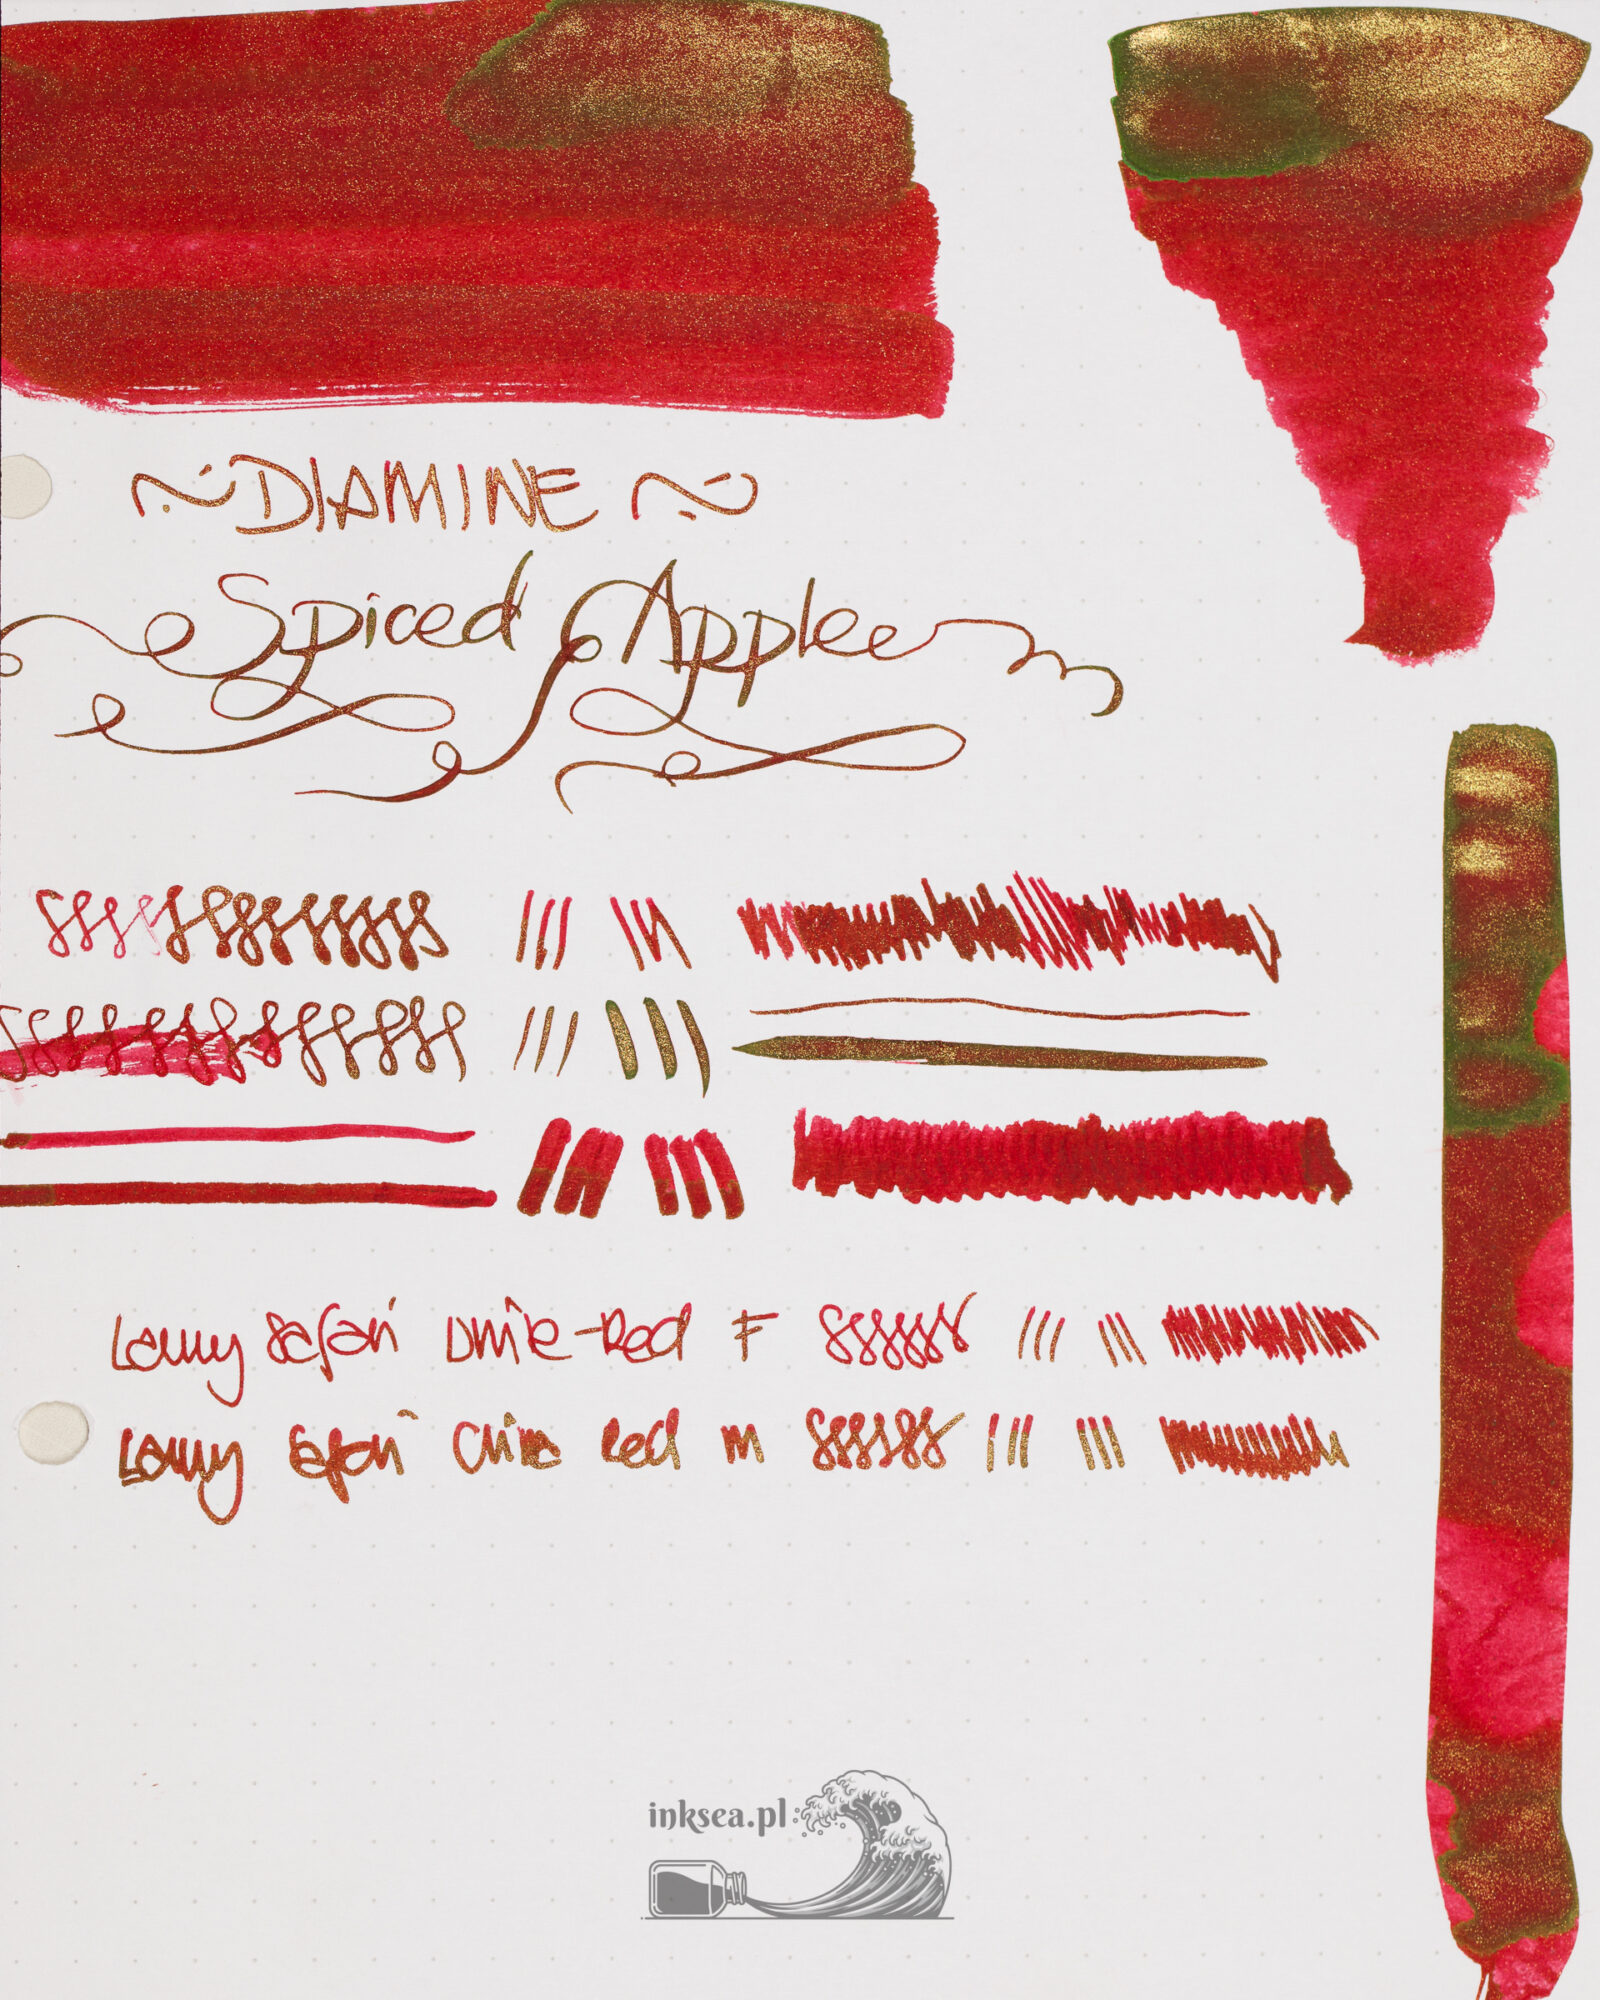 ~DIAMINE ~
Spiced Apple
Lamy Safari Umie-Red F
Lamy Safari China Red M
inksea.pl